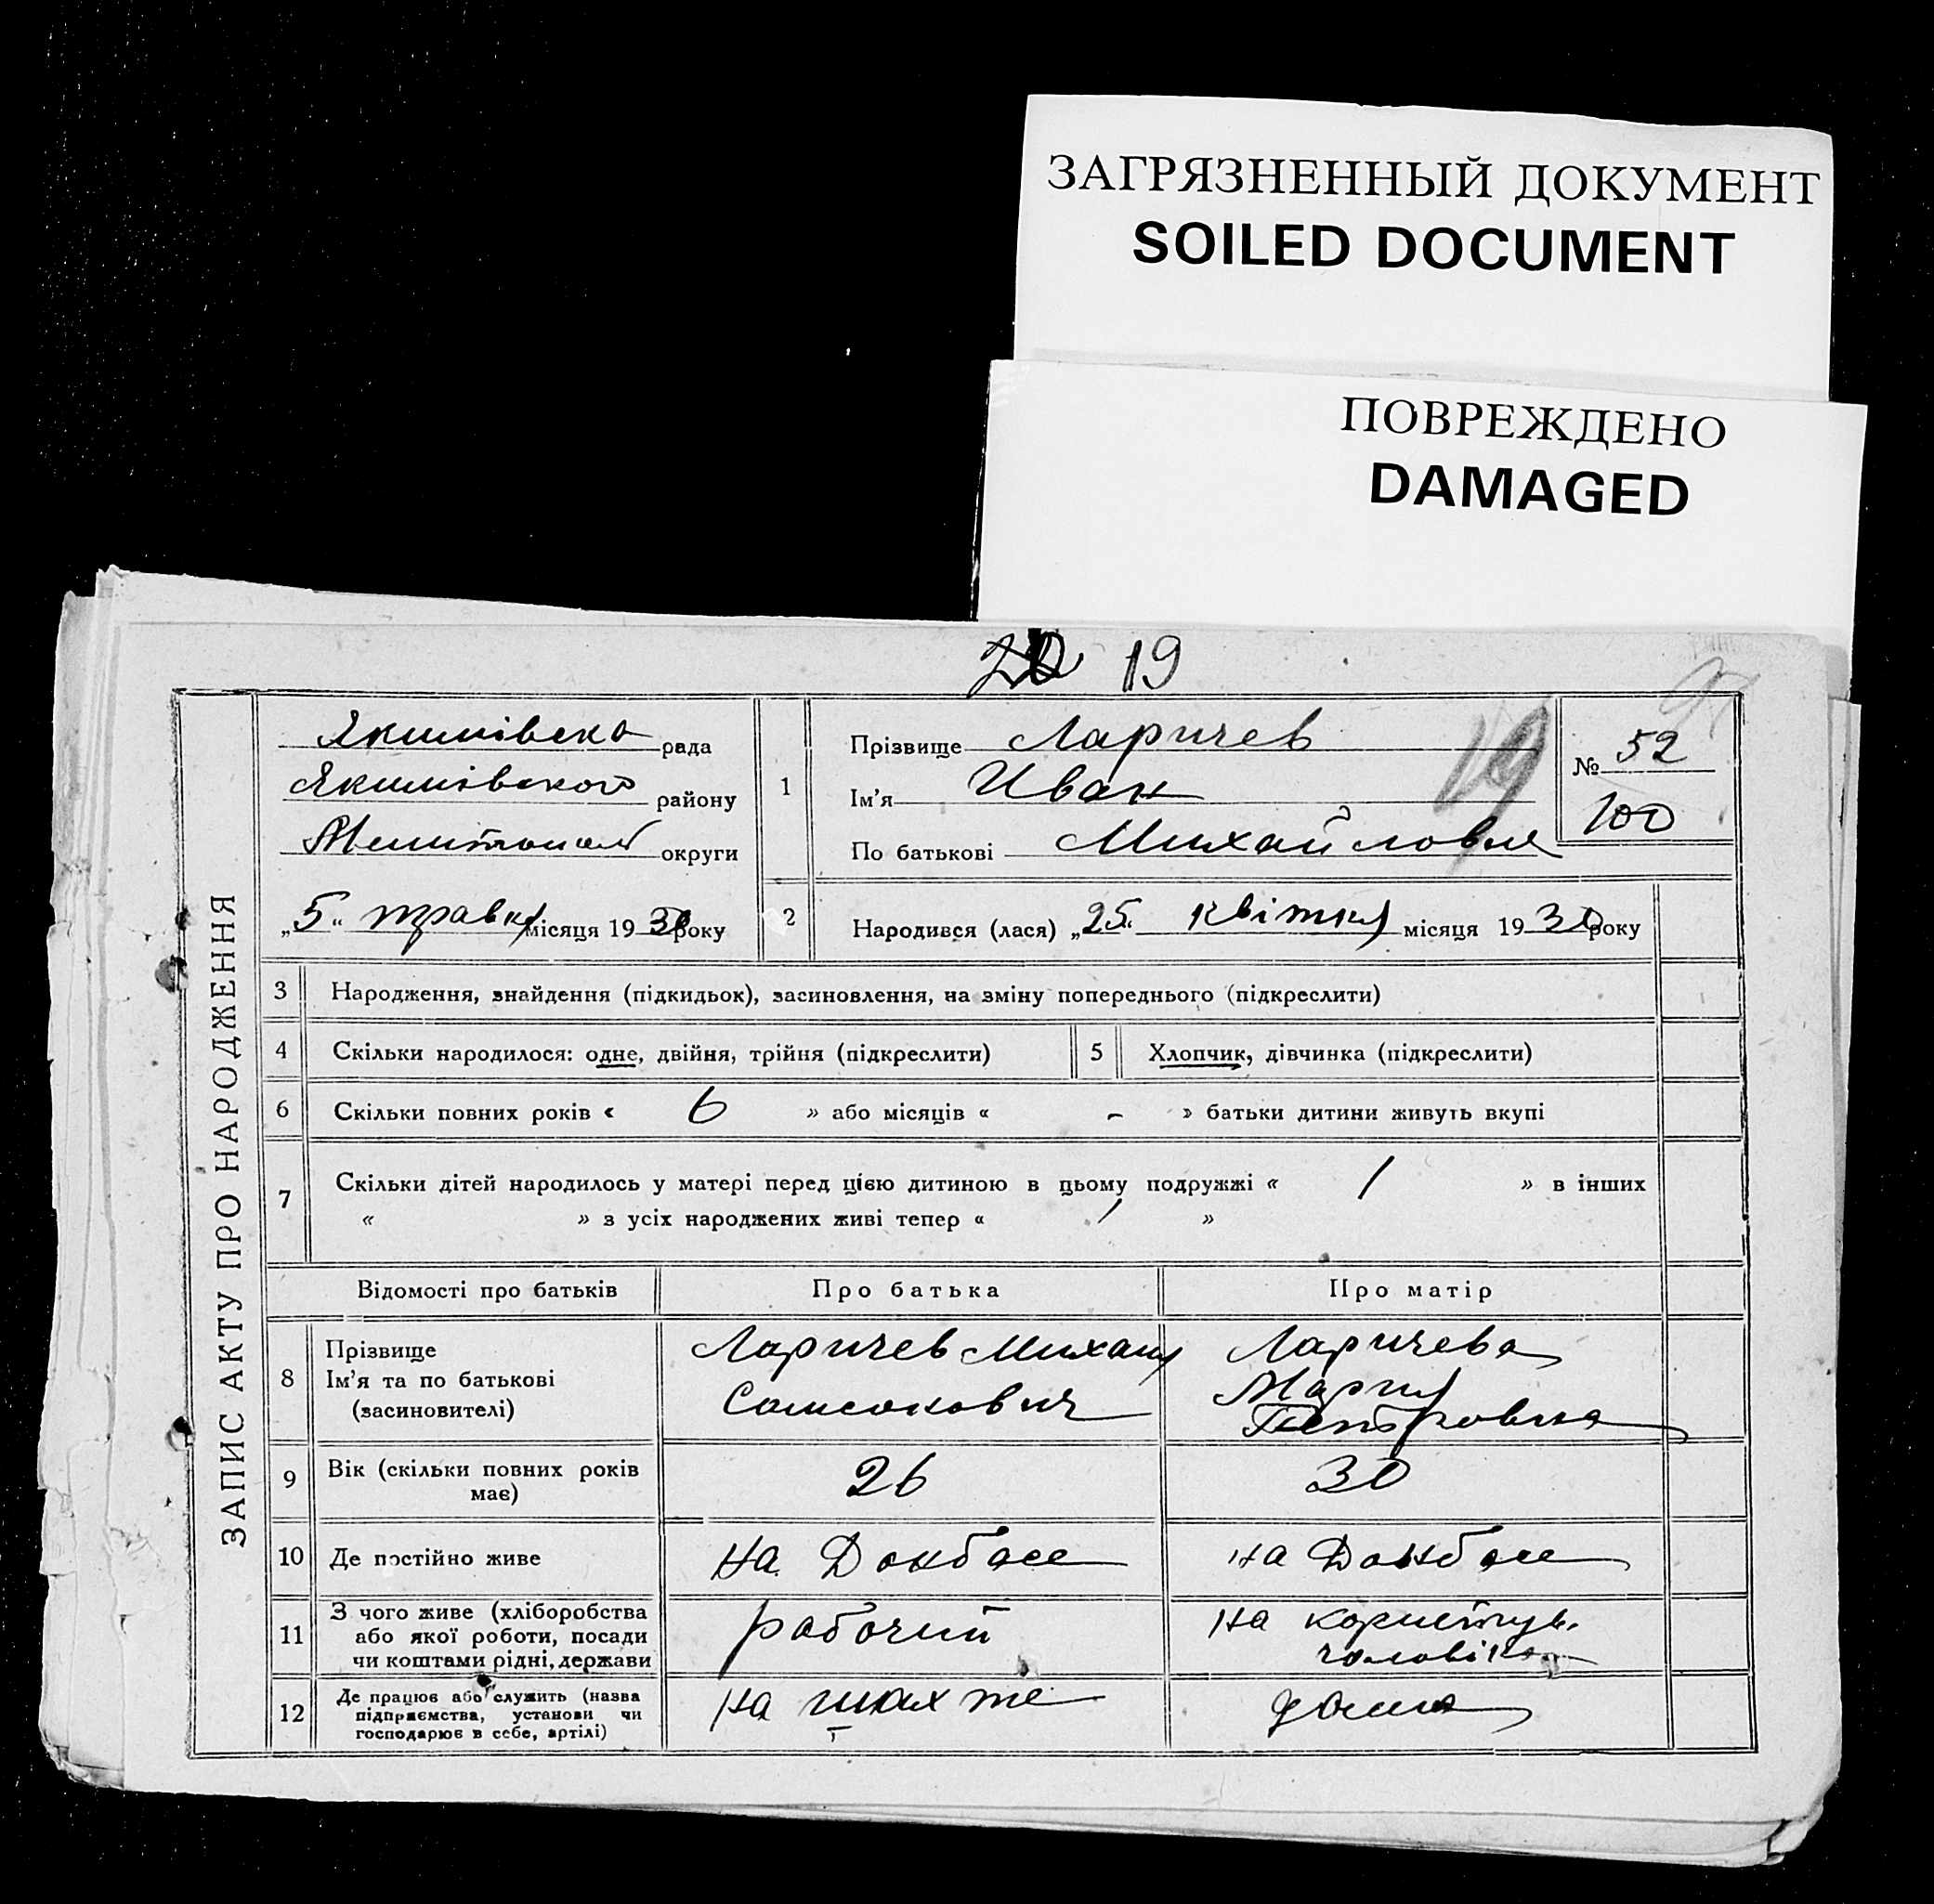 ЗАГРЯЗНЕННЫЙ ДОКУМЕНТ
SOILED DOCUMENT
ПОВРЕЖДЕНО
DAMAGED
20 19
ЗАПИС АКТУ ПРО НАРОДЖЕННЯ
Якимівська рада
Якимівського району
округи
„5“ травня місяця 1930 року
1
Прізвище Ларичев
Ім'я Иван
По батькові Михайлович
19
№ 52
100
2 Народився (лася) „25“ квітня місяця 1930 року
3 Народження, знайдення (підкидьок), засиновлення, на зміну попереднього (підкреслити)
4 Скільки народилося: одне, двійня, трійня (підкреслити) 5 Хлопчик, дівчинка (підкреслити)
6 Скільки повних років « 6 » або місяців « - » батьки дитини живуть вкупі
7 Скільки дітей народилось у матері перед цією дитиною в цьому подружжі « 1 » в інших
« » з усіх народжених живі тепер « 1 »
Відомості про батьків Про батька Про матір
8 Прізвище
Ім'я та по батькові
(засиновителі)
Ларичев Михаил
Самсонович
Ларичева
Мария
Петровна
9 Вік (скільки повних років
має)
26
30
10 Де постійно живе
на Донбасе
на Донбасе
11 З чого живе (хліборобства
або якої роботи, посади
чи коштами рідні, держави
рабочий
на
чоловіка
12 Де працює або служить (назва
підприємства, установи чи
господарює в себе, артілі)
на шахте
дома